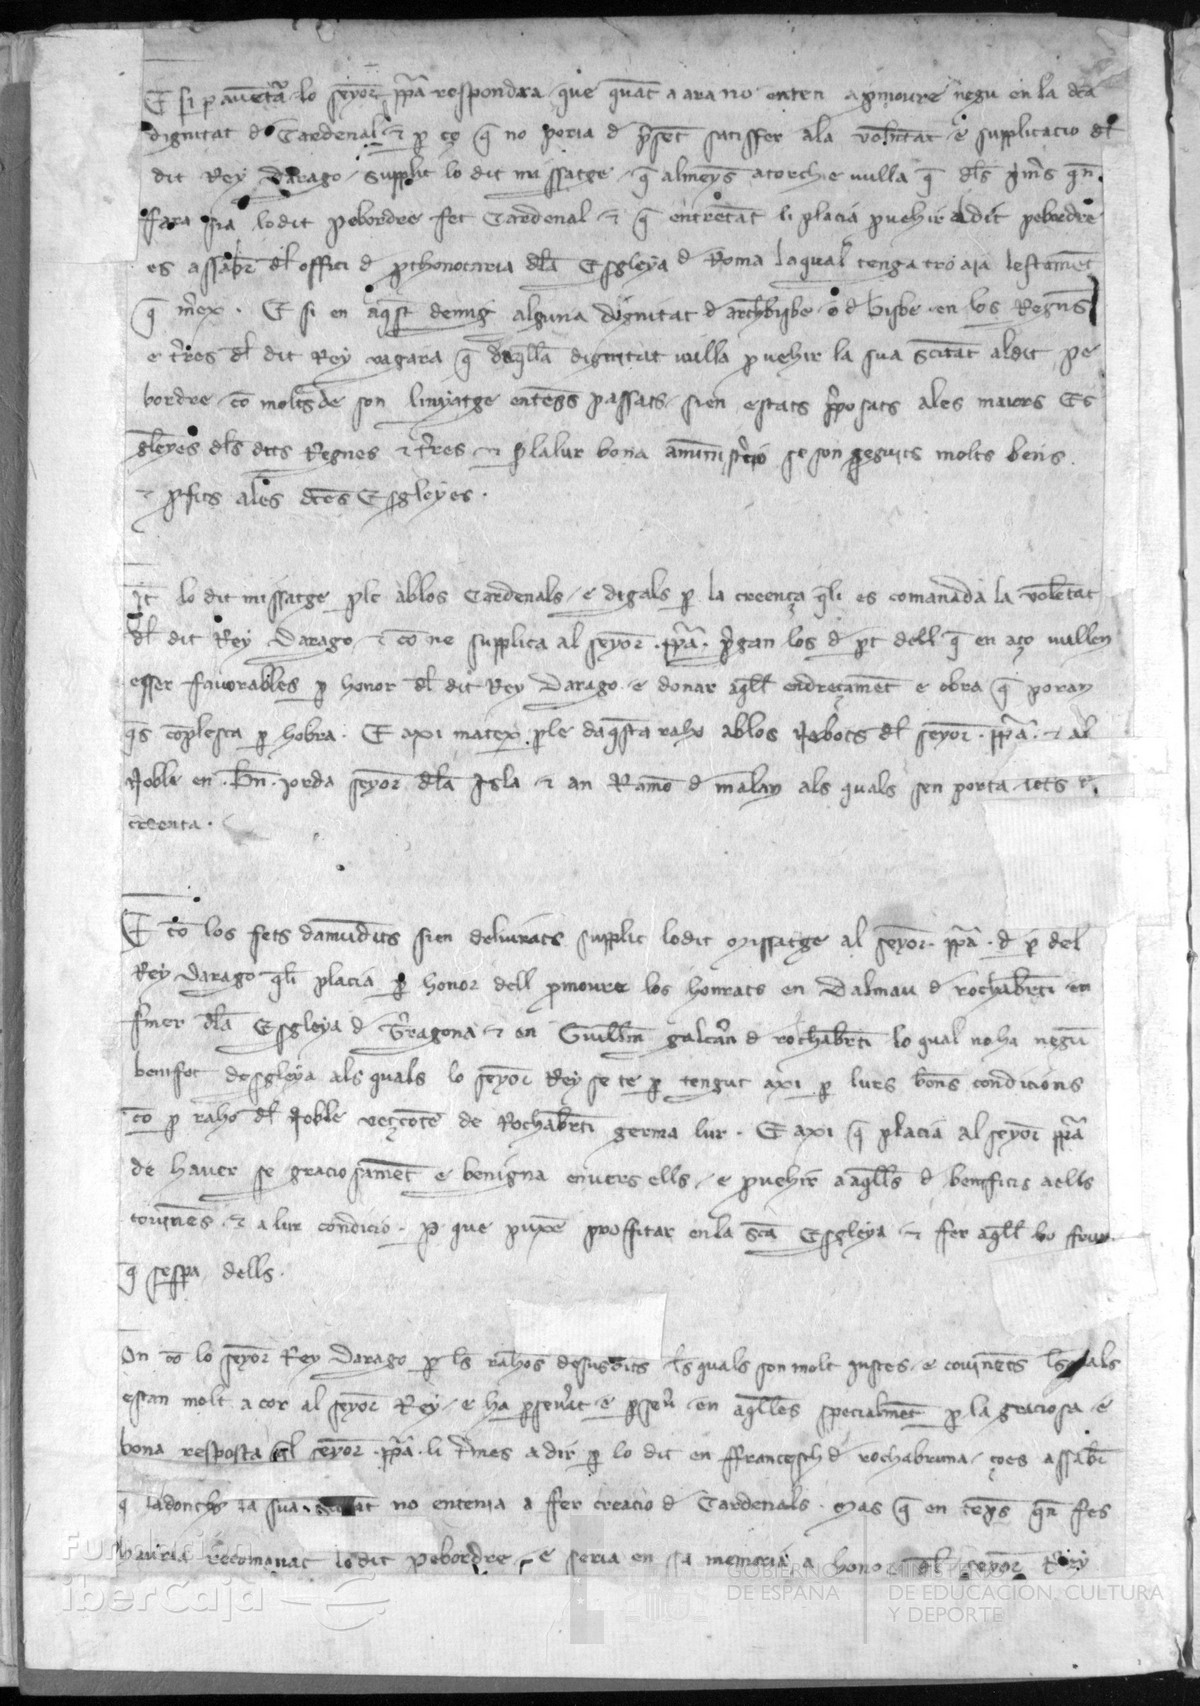 E si p auēta lo seyor ppa respondra que quāt a ara no enten a pmoure negu en la dca
dignitat d Cardenal ⁊ p ço q̄ no poria d p̄sēt satisffer ala volūtat e supplicacio dl
dit Rey Darago supplic lo dit missatge q̄ almēys atorch e vulla q̄ dls p̄m̄s qn̄
fara sia lo dit pebordre fet Cardenal ⁊ q̄ entretāt li placia pvehir al dit pebordre
es assab̄r dl offici d pthonotaria dla Esgleya d Roma laqual tenga tro aia
q̄ m̄ex . E si en aq̄st demig alguna dignitat d archbisbe o d bisbe en los Regn̄s
e t̄res dl dit Rey vagara q̄ daq̄lla dignitat vulla pvehir la sua sc̄itat al dit pe
bordre cō molts de son linyatge en tēps passats sien estats p̄posats ales maiors Es
gleyes dls dits Regnes ⁊ t̄res ⁊ p la lur bona amīnistr̄cio se son p̄seguits molts bens
⁊ p̄fits ales dc̄es Esgleyes .
It̄ lo dit missatge ple ab los Cardenals e digals p la creença q̄li es comanada la volētat
dl dit Rey Darago ⁊ cō ne supplica al seyor ppa . p̄gan los d pt dell q̄ en aço vullen
esser favorables p honor dl dit Rey Darago e donar aq̄ll endreçamēt e obra q̄ poran
q̄s cōplesca p hobra . E axi matex ple daq̄sta raho ab los Nebots dl seyor . ppa . ⁊ al
Noble en . Bn̄ . jorda seyor dla Isla ⁊ an Ramō d malay als quals sen porta lets e
creenta .
E cō los fets damūdits sien deliurats supplic lo dit missatge al seyor ppa . d p del
Rey Darago q̄li placia p honor dell pmoure los honrats en Dalmau d rochab̄rti en
fmer dla Esgleya d T̄ragona ⁊ en Guillm̄ galcān d rochab̄rti lo qual no ha negū
benifet desgleya als quals lo seyor Rey se te p tengut axi p lurs bōns condicions
cō p raho dl Noble vezcōte de Rochab̄rti germa lur . E axi q̄ placia al seyor ppa
de haver se graciosamēt e benigna envers ells e pvehir a aq̄lls d beneficis a ells
covinēs ⁊ a lur condicio . p que puxē proffitar en la sc̄a Esgleya ⁊ fer aq̄ll bo fruyt
q̄ sesp̄a dells .
On cō lo seyor Rey Darago p ls rahos desusdits ls quals son molt justes e covinēts ls quals
estan molt a cor al seyor Rey e ha p̄sev̄at e p̄sev̄ en aq̄lles specialmēt p la graciosa e
bona resposta q̄l seyor . ppa . li t̄mes a dir p lo dit en ffrancesch d rochabruna / ço es assab̄
q̄ ladonchs la sua no entenia a ffer creacio d Cardenals . mas q̄ en tēps qn̄ fes
hauria recomanat lo dit pebordre e seria en sa memoria a honor dl seyor Rey
Fundación
iberCaja
GOBIERNO
DE ESPAÑA
DE EDUCACIÓN, CULTURA
Y DEPORTE